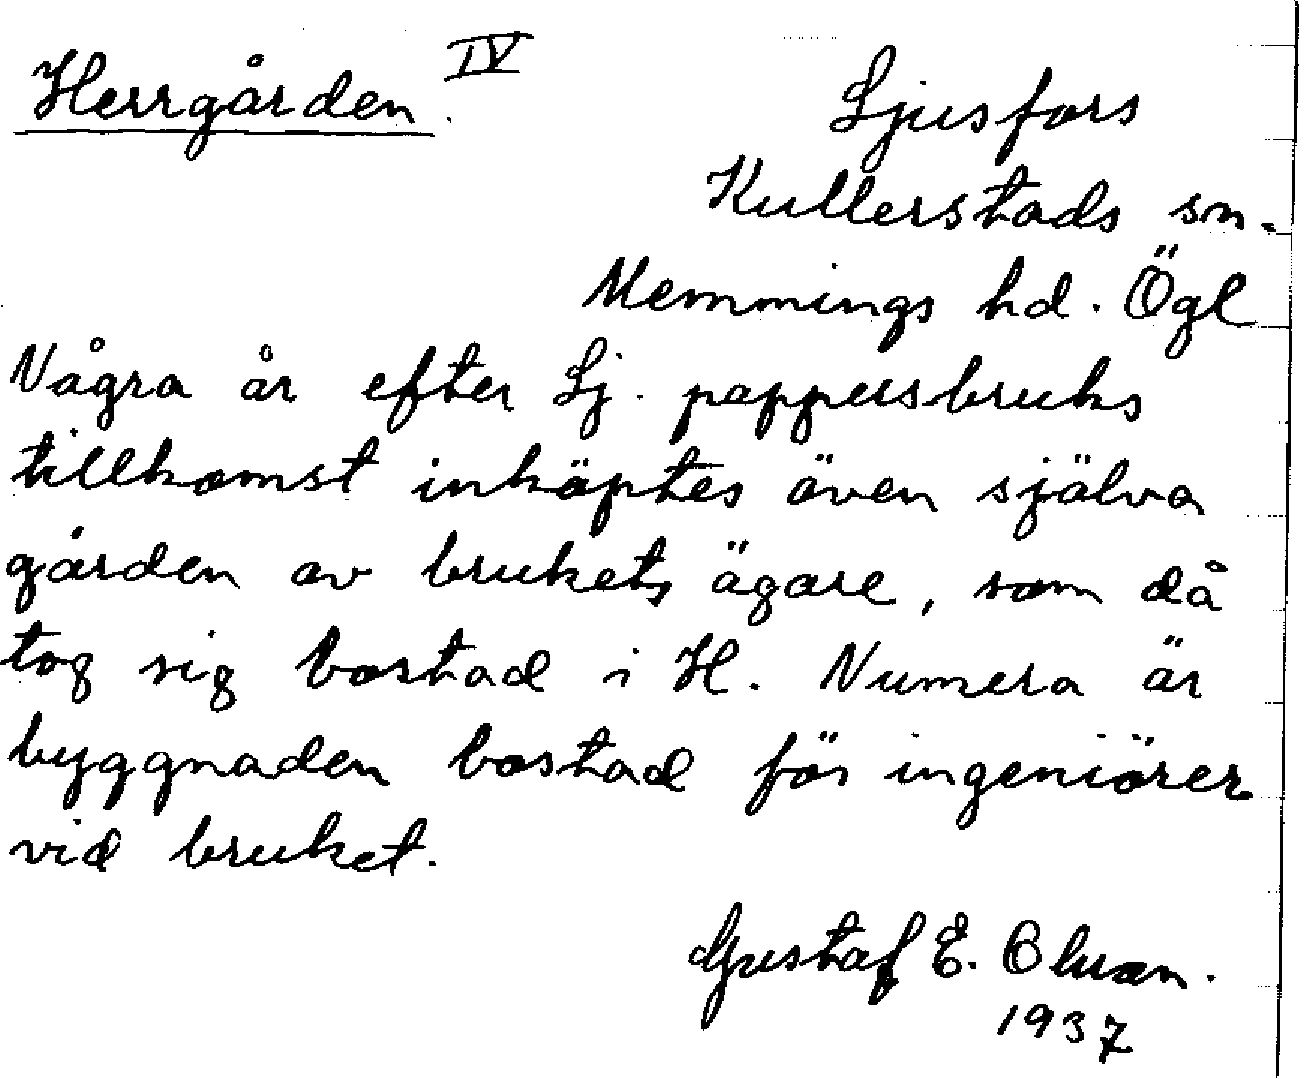 Herrgården. IV
Ljusfors
Kullerstads sn.
Memmings hd. Ögl
Några år efter Lj. pappersbruks
tillkomst inköptes även själva
gården av brukets ägare, som då
tog sig bostad i H. Numera är
byggnaden bostad för ingeniörer
vid bruket.
Gustaf E.
1937